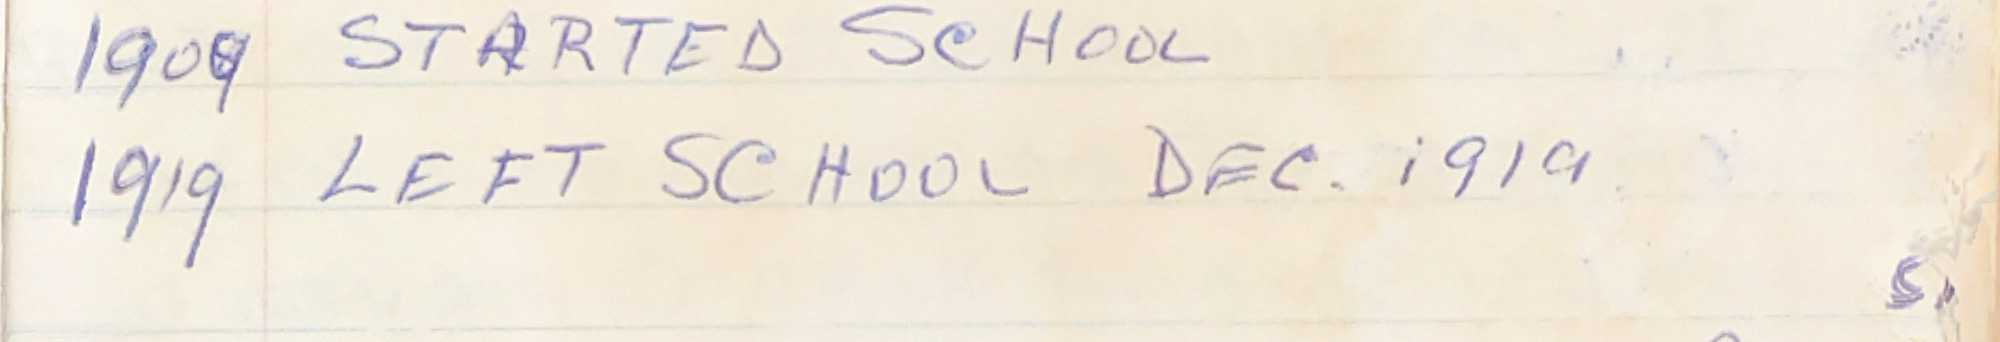 1909 STARTED SCHOOL
1919 LEFT SCHOOL DEC. 1919
S.